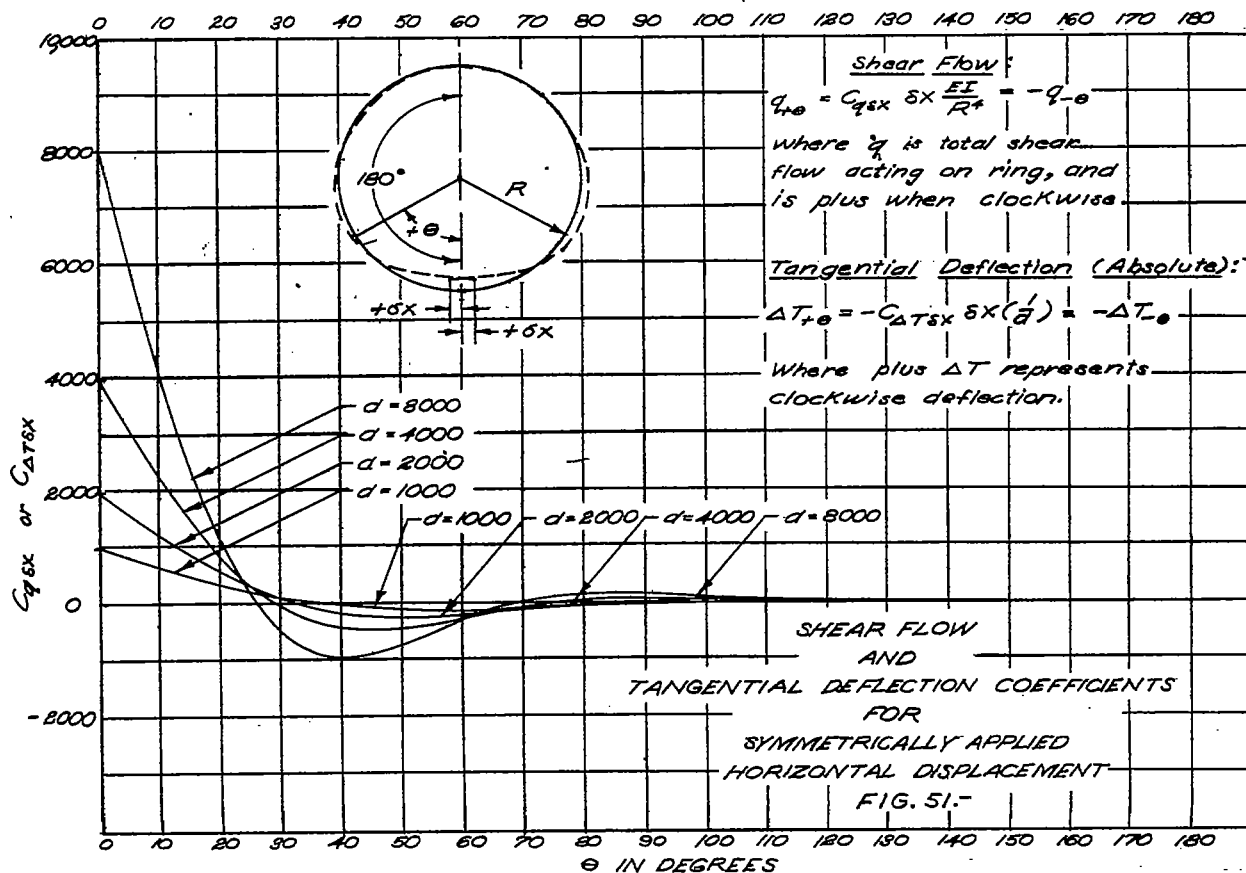 0 10 20 30 40 50 60 70 80 90 100 110 120 130 140 150 160 170 180
10,000
8000
6000
4000
2000
0
-2000
C_qδX or C_ΔTδX
180°
R
+θ
+δX
+δX
Shear Flow:
q_+θ = C_qδX δX EI/R⁴ = -q_-θ
where q is total shear
flow acting on ring, and
is plus when clockwise.
Tangential Deflection (Absolute):
ΔT_+θ = -C_ΔTδX δX(1/d) = -ΔT_-θ
Where plus ΔT represents
clockwise deflection.
d=8000
d=4000
d=2000
d=1000
d=1000 d=2000 d=4000 d=8000
SHEAR FLOW
AND
TANGENTIAL DEFLECTION COEFFICIENTS
FOR
SYMMETRICALLY APPLIED
HORIZONTAL DISPLACEMENT
FIG. 51.-
0 10 20 30 40 50 60 70 80 90 100 110 120 130 140 150 160 170 180
θ IN DEGREES